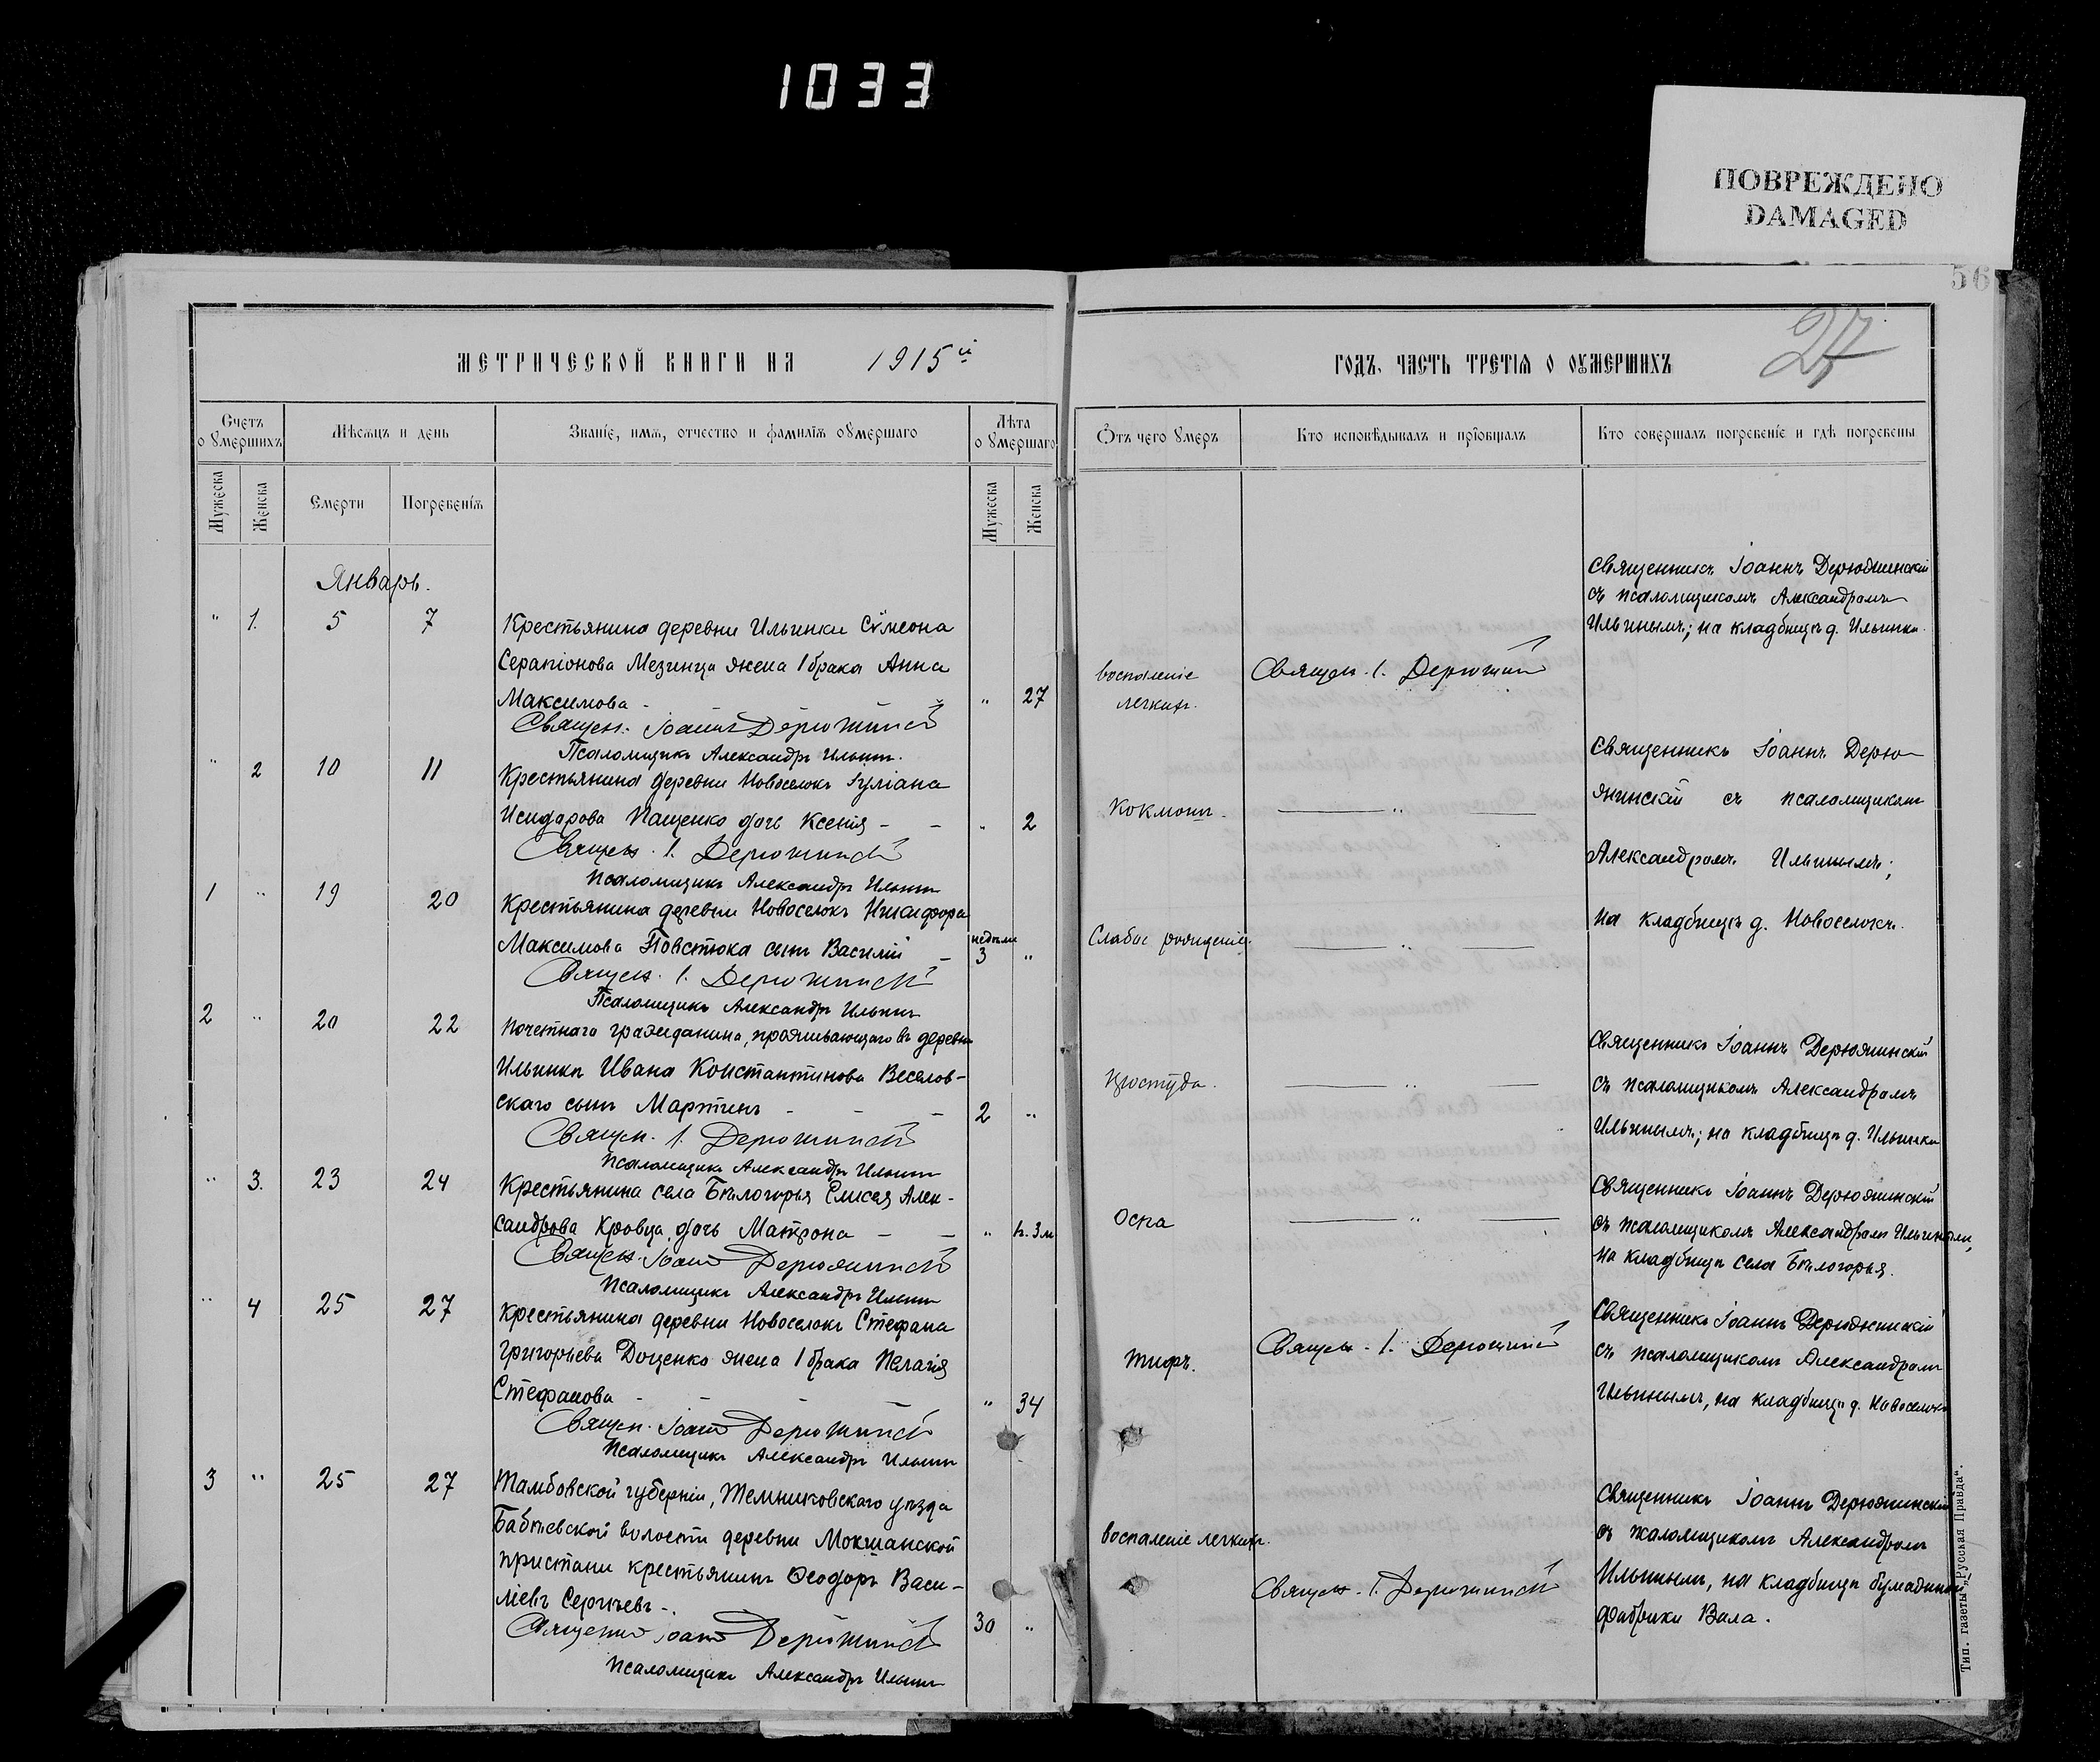 1033
ПОВРЕЖДЕНО
DAMAGED
56
27
МЕТРИЧЕСКОЙ КНИГИ НА 1915й
ГОДЪ, ЧАСТЬ ТРЕТІЯ О ОУМЕРШИХЪ
Счетъ оумершихъ
Мѣсяцъ и день
Званіе, имя, отчество и фамилія оумершаго
Лѣта оумершаго
Мужеска
Женска
Смерти
Погребенія
Мужеска
Женска
Отъ чего умеръ
Кто исповѣдывалъ и пріобщалъ
Кто совершалъ погребеніе и гдѣ погребены
Январь.
" 1. 5 7
Крестьянина деревни Ильинки Сѵмеона
Серапіонова Мезинца жена 1 брака Анна
Максимова - " 27
Священ. Іоаннъ Дерюжинскій
Псаломщикъ Александръ Ильинъ.
воспаленіе
легкихъ.
Священ. І. Дерюжинскій
Священникъ Іоаннъ Дерюжинскій
съ псаломщикомъ Александромъ
Ильинымъ; на кладбищѣ д. Ильинки.
" 2 10 11
Крестьянина деревни Новоселокъ Іуліана
Исидорова Пащенко дочь Ксенія - - " 2
Священ. І. Дерюжинскій
Псаломщикъ Александръ Ильинъ
Коклюшъ.
— " —
Священникъ Іоаннъ Дерю-
жинскій съ псаломщикомъ
Александромъ Ильинымъ;
на кладбищѣ д. Новоселокъ.
1 " 19 20
Крестьянина деревни Новоселокъ Никифора
Максимова Повстюка сынъ Василій - недѣли 3 "
Священ. І. Дерюжинскій
Псаломщикъ Александръ Ильинъ
— " —
2 " 20 22
Почетнаго гражданина, проживающаго въ деревнѣ
Ильинкѣ Ивана Константинова Веселов-
скаго сынъ Мартинъ - - - 2 "
Священ. І. Дерюжинскій
Псаломщикъ Александръ Ильинъ
простуда.
— " —
Священникъ Іоаннъ Дерюжинскій
съ псаломщикомъ Александромъ
Ильинымъ; на кладбищѣ д. Ильинки
" 3. 23 24
Крестьянина села Бѣлогорья Елисея Алек-
сандрова Кровца дочь Матрона - - "
Священ. Іоаннъ Дерюжинскій
Псаломщикъ Александръ Ильинъ
Оспа
— " —
Священникъ Іоаннъ Дерюжинскій
съ псаломщикомъ Александромъ Ильинымъ,
на кладбищѣ села Бѣлогорья.
" 4 25 27
Крестьянина деревни Новоселокъ Стефана
Григорьева Доценко жена 1 брака Пелагія
Стефанова - - - - " 34
Священ. Іоаннъ Дерюжинскій
Псаломщикъ Александръ Ильинъ
тифъ.
Священ. І. Дерюжинскій
Священникъ Іоаннъ Дерюжинскій
съ псаломщикомъ Александромъ
Ильинымъ, на кладбищѣ д. Новоселокъ
3 " 25 27
Тамбовской губерніи, Темниковскаго уѣзда
волости деревни Мокшанской
пристани крестьянинъ Ѳеодоръ Васи-
ліевъ Сергѣевъ -. 30 "
Священникъ Іоаннъ Дерюжинскій
Псаломщикъ Александръ Ильинъ
воспаленіе легкихъ.
Священ. І. Дерюжинскій
Священникъ Іоаннъ Дерюжинскій
съ псаломщикомъ Александромъ
Ильинымъ, на кладбищѣ бумажной
фабрики Вала.
Тип. газеты „Русская Правда".